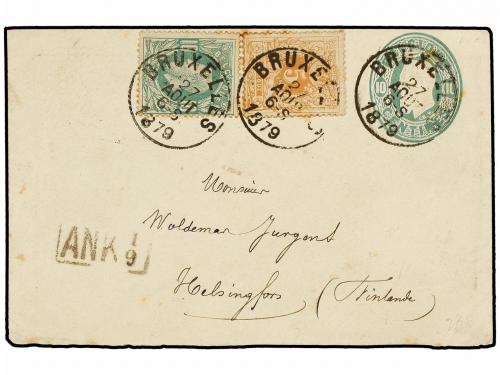 BRUXELLES
27
AOUT
6-S
1879
BRUXELLES
27
AOUT
6-S
1879
BRUXELLES
27
AOUT
6-S
1879
10
5
Monsieur
Woldemar Jurgens
ANK 1/9
Helsingfors (Finlande)